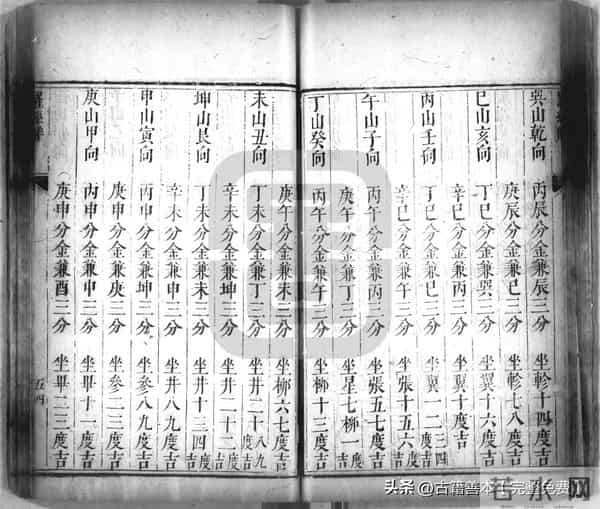 巽山乾向 丙辰分金兼辰三分 坐軫十四度吉
庚辰分金兼巳三分 坐軫七八度吉
巳山亥向 丁巳分金兼巽三分 坐翼十六度吉
辛巳分金兼丙三分 坐翼十度吉
丙山壬向 丁巳分金兼巳三分 坐翼一二三四度吉
辛巳分金兼午三分 坐張十五六度吉
午山子向 丙午分金兼丙三分 坐張五七度吉
庚午分金兼丁三分 坐星七柳一度吉
丁山癸向 丙午分金兼午三分 坐柳十三度吉
庚午分金兼未三分 坐柳六七度吉
未山丑向 丁未分金兼丁三分 坐井二十八九度吉
辛未分金兼坤三分 坐井二十二度吉
坤山艮向 丁未分金兼未三分 坐井十三四度吉
辛未分金兼申三分 坐井八九度吉
申山寅向 丙申分金兼坤三分 坐參八九度吉
庚申分金兼庚三分 坐參二三度吉
庚山甲向 丙申分金兼申三分 坐畢十一度吉
庚申分金兼酉三分 坐畢二三度吉
五四
头条 @古籍善本 完整免费